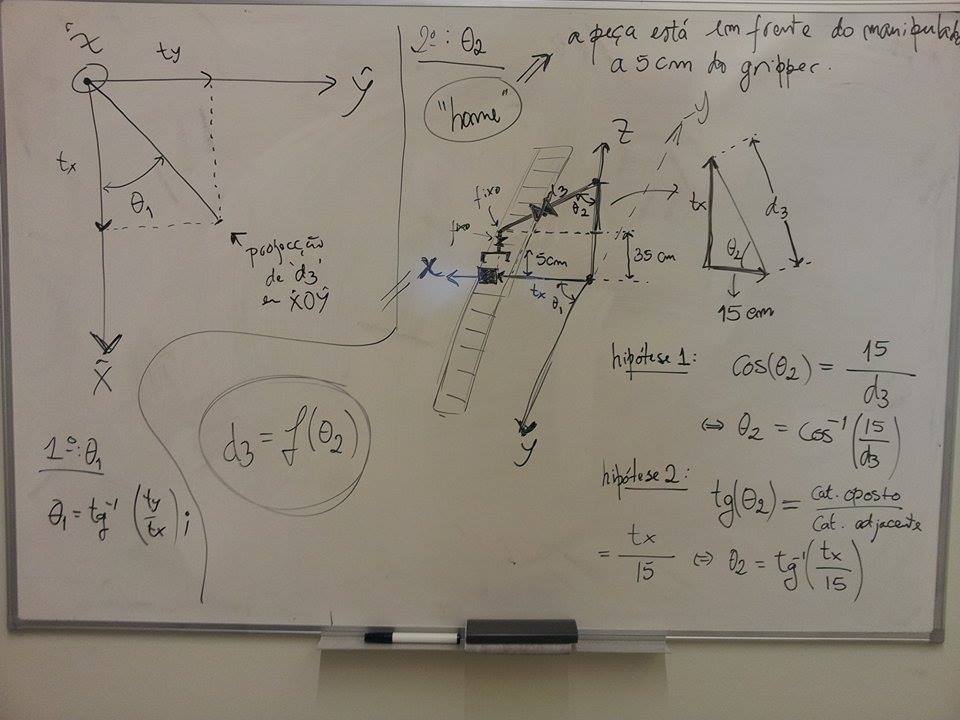 Ẑ
ty
Ŷ
tx
θ1
projecção
de 'd3'
em X̂OŶ
X̂
1º: θ1
θ1 = tg⁻¹ (ty/tx);
d3 = f(θ2)
2º: θ2
"home"
a peça está em frente do manipulado
a 5cm do gripper.
Z
-y
d3
fixo
θ2
fixo
X
5cm
35 cm
tx
θ1
y
tx
d3
θ2
15 cm
hipótese 1: cos(θ2) = 15/d3
⇔ θ2 = cos⁻¹ (15/d3)
hipótese 2: tg(θ2) = cat. oposto/cat. adjacente
= tx/15 ⇔ θ2 = tg⁻¹ (tx/15)